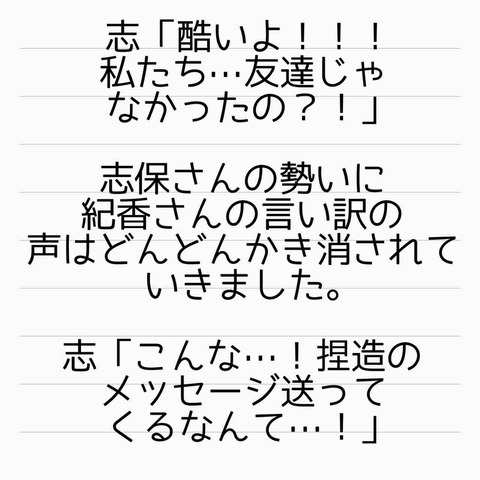 志「酷いよ！！！
私たち…友達じゃ
なかったの？！」
志保さんの勢いに
紀香さんの言い訳の
声はどんどんかき消されて
いきました。
志「こんな…！捏造の
メッセージ送って
くるなんて…！」